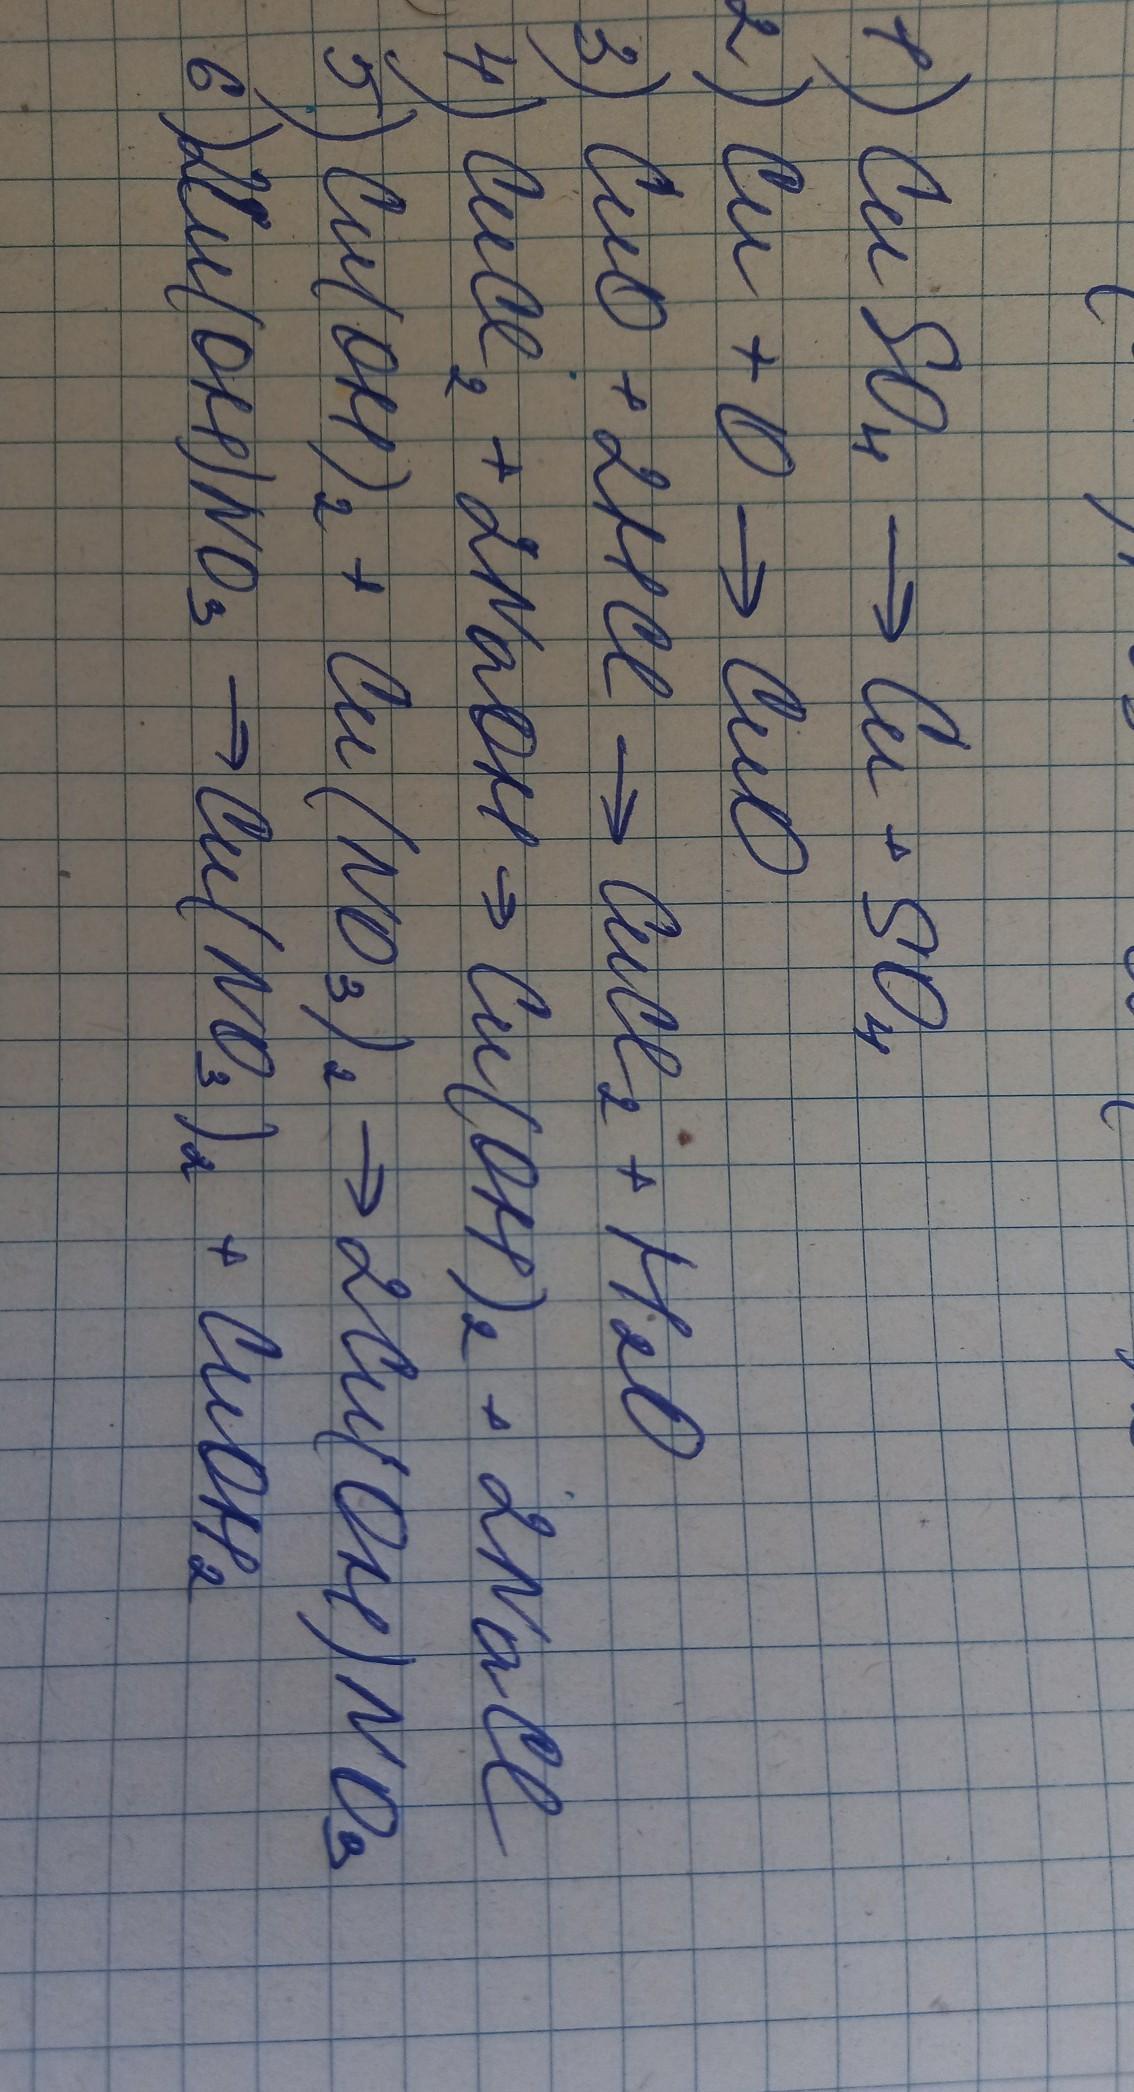 1) CuSO₄ → Cu + SO₄
2) Cu + O → CuO
3) CuO + 2HCl → CuCl₂ + H₂O
4) CuCl₂ + 2NaOH → Cu(OH)₂ + 2NaCl
5) Cu(OH)₂ + Cu(NO₃)₂ → 2Cu(OH)NO₃
6) 2Cu(OH)NO₃ → Cu(NO₃)₂ + CuOH₂